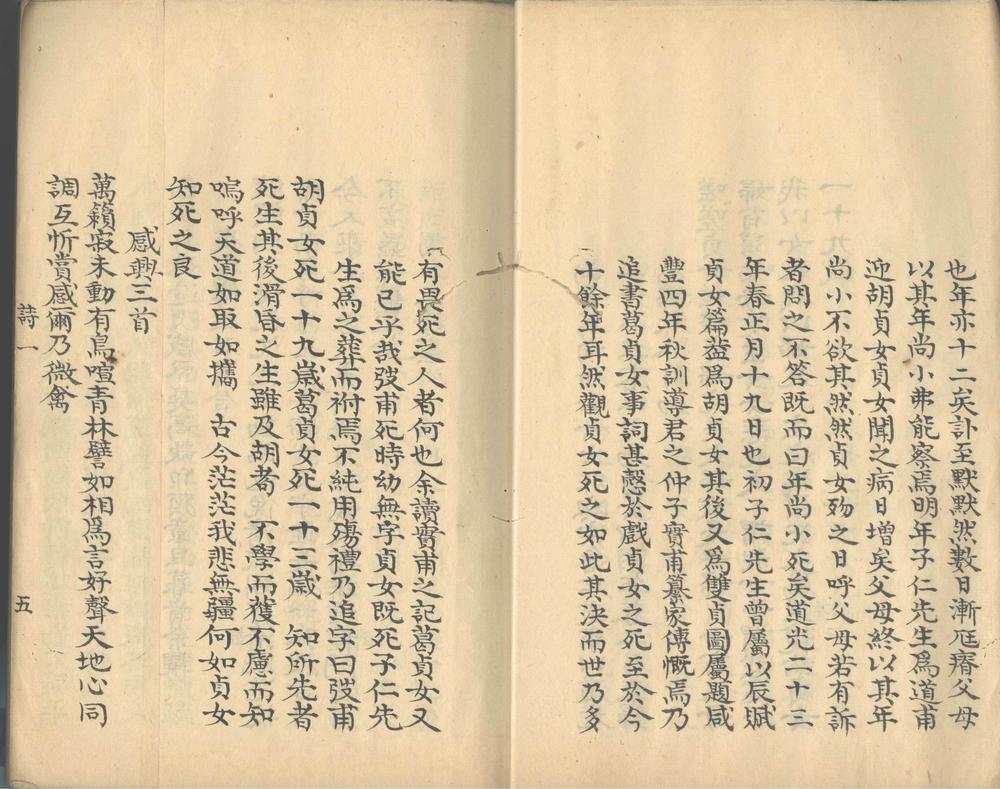 也年亦十二矣訃至默默然數日漸尪瘠父母
以其年尚小弗能察焉明年子仁先生爲道甫
迎胡貞女貞女聞之病日增矣父母終以其年
尚小不欲其然然貞女殁之日呼父母若有訴
者問之不答既而曰年尚小死矣道光二十三
年春正月十九日也初子仁先生曾屬以辰賦
貞女篇葢爲胡貞女其後又爲雙貞圖屬題咸
豐四年秋訓導君之仲子實甫纂家傳慨焉乃
追書葛貞女事詞甚慤於戲貞女之死至於今
十餘年耳然觀貞女死之如此其決而世乃多
有畏死之人者何也余讀實甫之記葛貞女又
能已乎哉弢甫死時幼無字貞女既死子仁先
生爲之葬而祔焉不純用殤禮乃追字曰弢甫
胡貞女死一十九歲葛貞女死一十三歲 知所先者
死生其後滑昏之生雖及胡耇 不學而獲不慮而知
嗚呼天道如取如攜 古今茫茫我悲無疆何如貞女
知死之良
感興三首
萬籟寂未動有鳥喧青林譬如相爲言好聲天地心同
調互忻賞感爾乃微禽
詩一
五